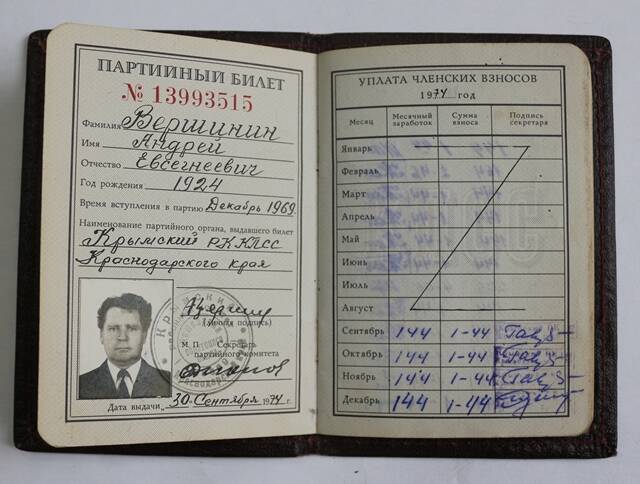 ПАРТИЙНЫЙ БИЛЕТ
№ 13993515
Фамилия Вершинин
Имя Андрей
Отчество Евсегнеевич
Год рождения 1924
Время вступления в партию Декабрь 1969
Наименование партийного органа, выдавшего билет
Крымский РК КПСС
Краснодарского края
(личная подпись)
М. П. Секретарь
партийного комитета
Дата выдачи 30 Сентября 1974 г.
УПЛАТА ЧЛЕНСКИХ ВЗНОСОВ
1974 год
Месяц Месячный заработок Сумма взноса Подпись секретаря
Январь
Февраль
Март
Апрель
Май
Июнь
Июль
Август
Сентябрь 144 1-44
Октябрь 144 1-44
Ноябрь 144 1-44
Декабрь 144 1-44